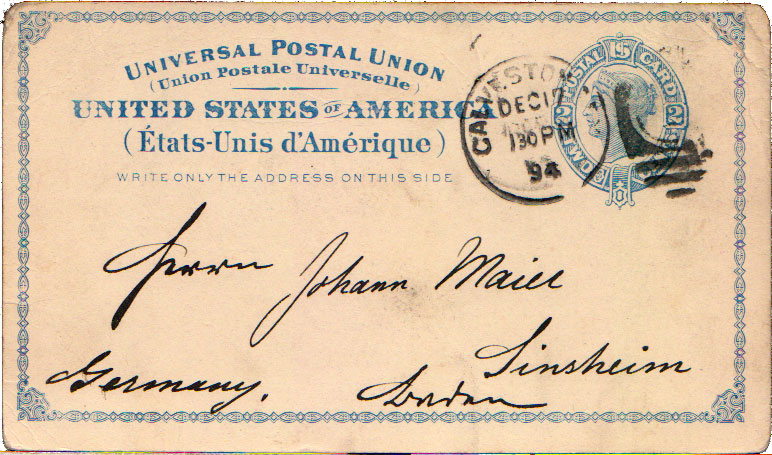 UNIVERSAL POSTAL UNION
(Union Postale Universelle)
UNITED STATES OF AMERICA
(États-Unis d'Amérique)
WRITE ONLY THE ADDRESS ON THIS SIDE
GALVESTON
DEC 17
130 PM
94
POSTAL CARD
TWO
Herrn Johann Maier
Sinsheim
Germany. Baden